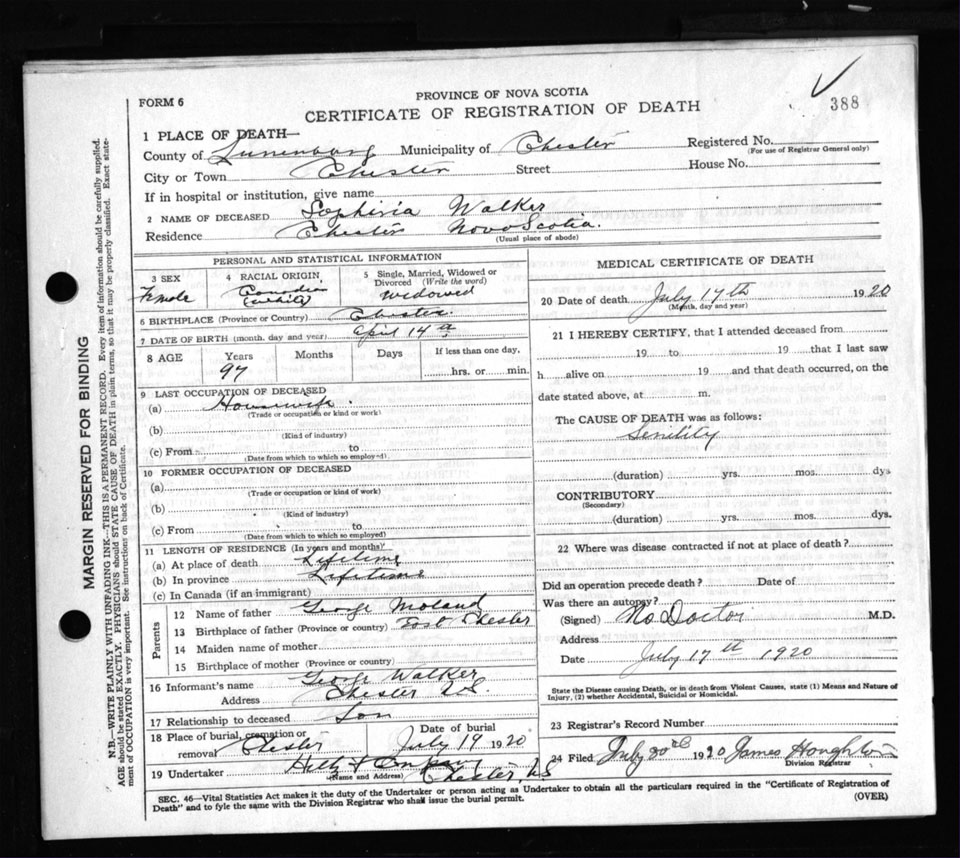 388
PROVINCE OF NOVA SCOTIA
FORM 6
CERTIFICATE OF REGISTRATION OF DEATH
1 PLACE OF DEATH—
County of Lunenburg Municipality of Chester Registered No.
(For use of Registrar General only)
City or Town Chester Street House No.
If in hospital or institution, give name
2 NAME OF DECEASED Sophinia Walker
Residence Chester Nova Scotia.
(Usual place of abode)
PERSONAL AND STATISTICAL INFORMATION
3 SEX 4 RACIAL ORIGIN 5 Single, Married, Widowed or Divorced (Write the word)
Female Canadian (white) widowed
6 BIRTHPLACE (Province or Country) Chester
7 DATE OF BIRTH (month, day and year) April 14th
8 AGE Years Months Days If less than one day,
97 hrs. or min.
9 LAST OCCUPATION OF DECEASED
(a) Housewife
(Trade or occupation or kind or work)
(b)
(Kind of industry)
(c) From to
(Date from which to which so employed)
10 FORMER OCCUPATION OF DECEASED
(a)
(Trade or occupation or kind of work)
(b)
(Kind of industry)
(c) From to
(Date from which to which so employed)
11 LENGTH OF RESIDENCE (In years and months)
(a) At place of death Lifetime
(b) In province Lifetime
(c) In Canada (if an immigrant)
Parents
12 Name of father George Moland
13 Birthplace of father (Province or country) East Chester
14 Maiden name of mother
15 Birthplace of mother (Province or country)
16 Informant's name George Walker
Address Chester N.S.
17 Relationship to deceased Son
18 Place of burial, cremation or removal Chester Date of burial July 19 1920
19 Undertaker
(Name and Address) Chester, NS
MEDICAL CERTIFICATE OF DEATH
20 Date of death July 17th 1920
(Month, day and year)
21 I HEREBY CERTIFY, that I attended deceased from
19 to 19 that I last saw
h alive on 19 and that death occurred, on the
date stated above, at m.
The CAUSE OF DEATH was as follows:
Senility
(duration) yrs. mos. dys
CONTRIBUTORY
(Secondary)
(duration) yrs. mos. dys.
22 Where was disease contracted if not at place of death?
Did an operation precede death? Date of
Was there an autopsy?
(Signed) No Doctor M.D.
Address
Date July 17th 1920
State the Disease causing Death, or in death from Violent Causes, state (1) Means and Nature of
Injury, (2) whether Accidental, Suicidal or Homicidal.
23 Registrar's Record Number
24 Filed July 1920 James Houghton
Division Registrar
SEC. 46—Vital Statistics Act makes it the duty of the Undertaker or person acting as Undertaker to obtain all the particulars required in the "Certificate of Registration of
Death" and to fyle the same with the Division Registrar who shall issue the burial permit.
(OVER)
MARGIN RESERVED FOR BINDING
N.B.—WRITE PLAINLY WITH UNFADING INK—THIS IS A PERMANENT RECORD. Every item of information should be carefully supplied.
AGE should be stated EXACTLY. PHYSICIANS should STATE CAUSE OF DEATH in plain terms, so that it may be properly classified. Exact state-
ment of OCCUPATION is very important. See instructions on back of Certificate.